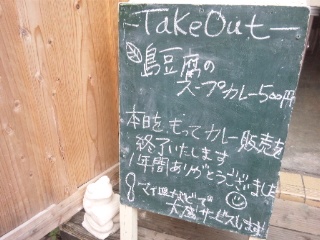 -TakeOut-
島豆腐の
スープカレー500円
本日をもってカレー販売を
終了いたします
1年間ありがとうございました
大盛サービスします!